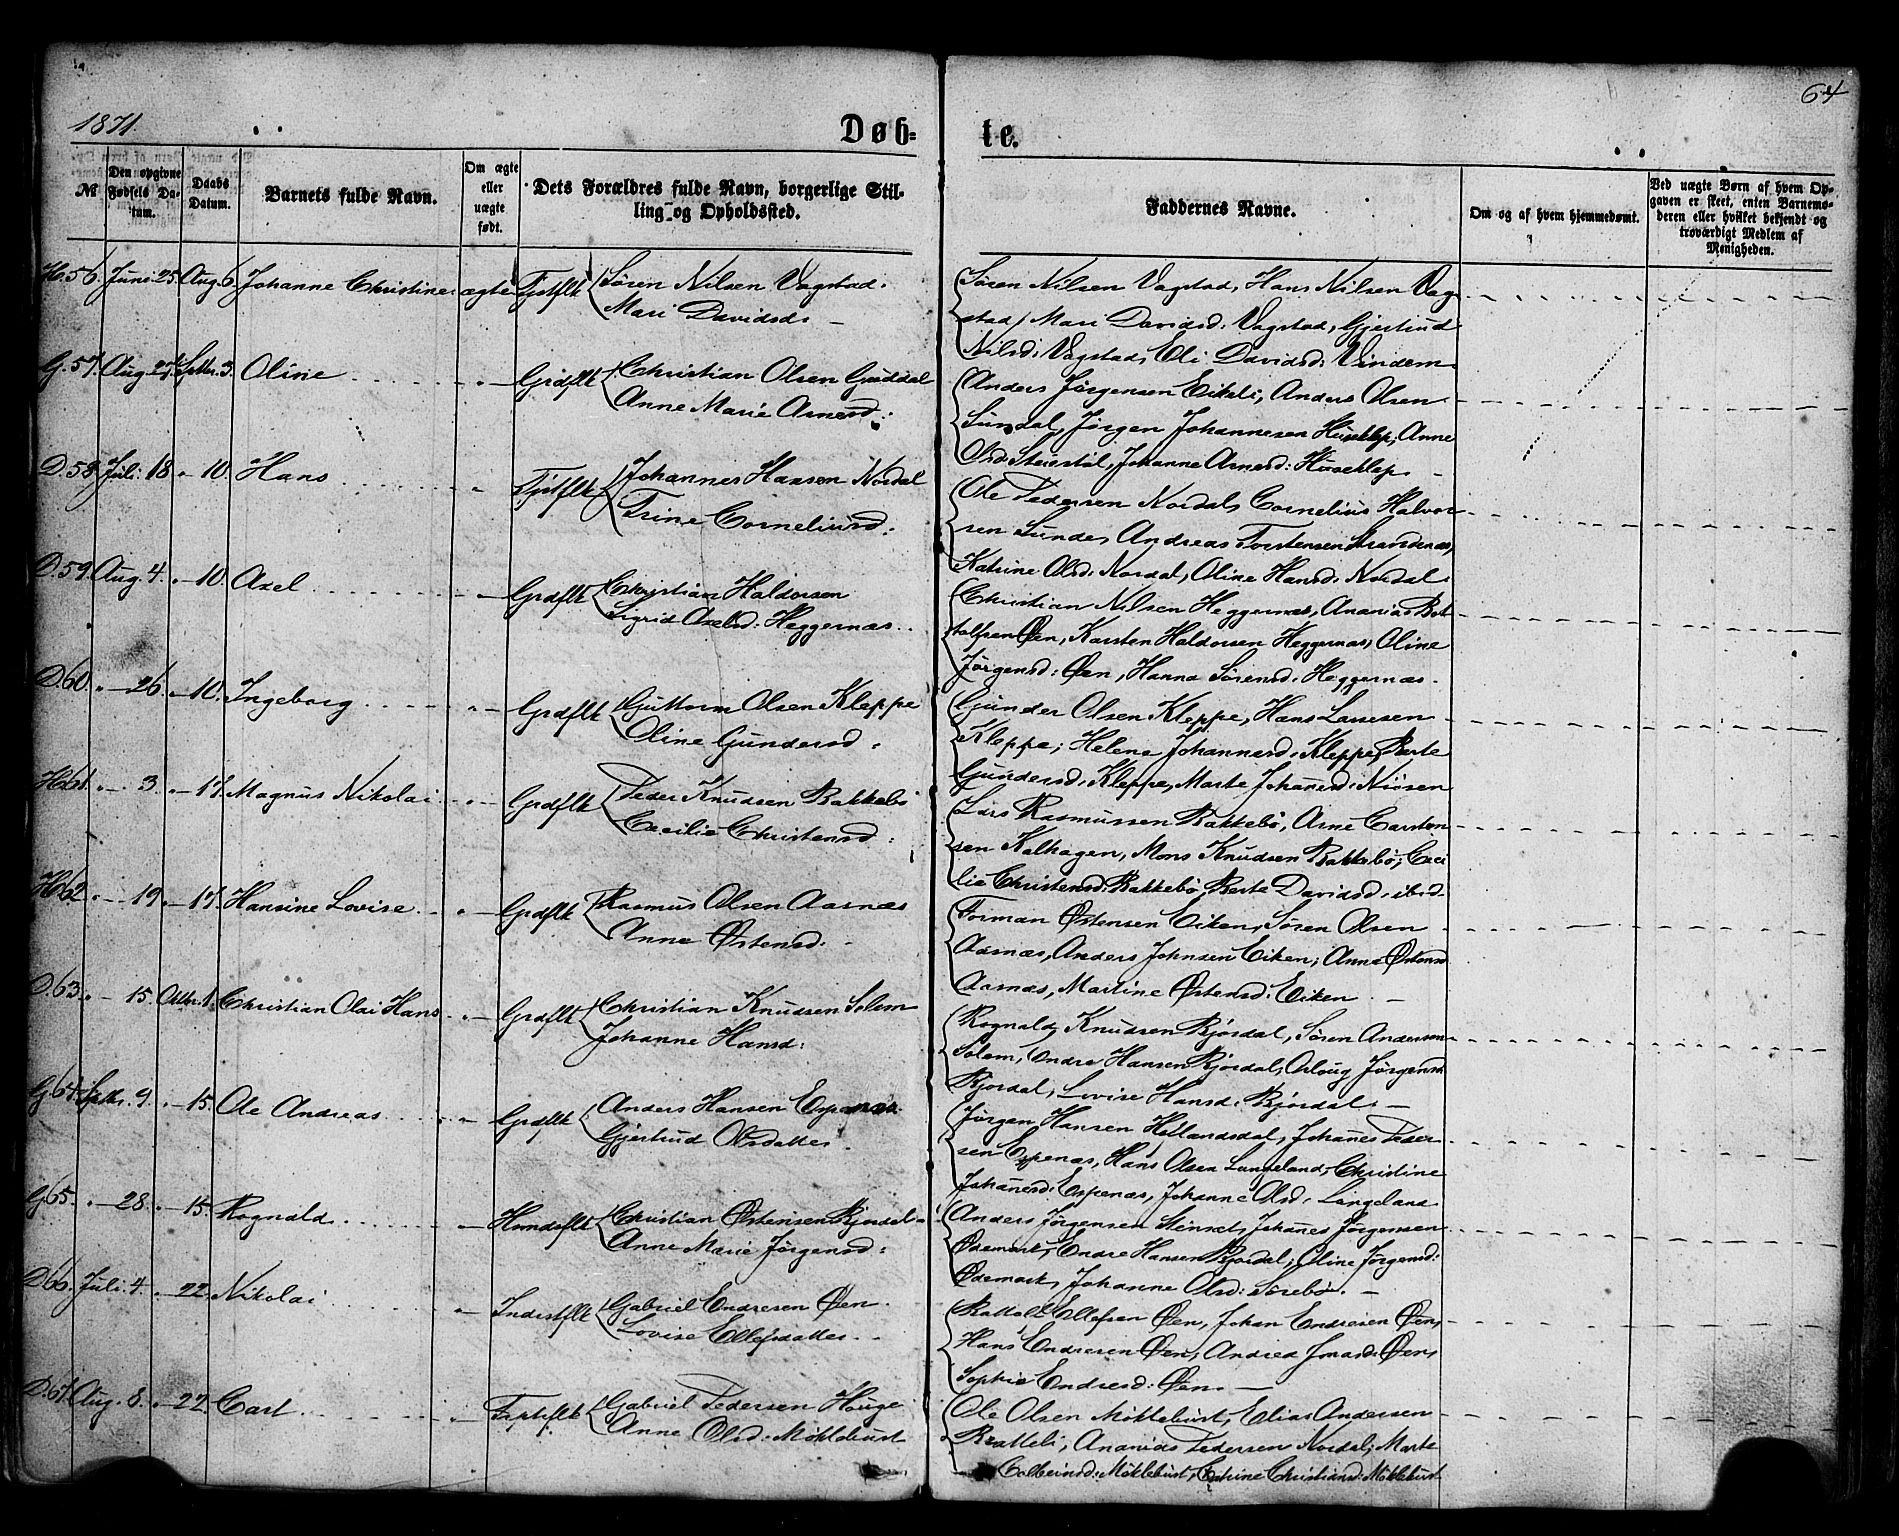 1871.
64
Døb-
te.
№
Den opgivne Fødsels Datum.
Daabs Datum.
Barnets fulde Navn.
Om ægte eller uægte født.
Dets Forældres fulde Navn, borgerlige Stilling og Opholdssted.
Faddernes Navne.
Om og af hvem hjemmedøbt.
Ved uægte Børn af hvem Opgaven er skeet, enten Barnemoderen eller hvilket bekjendt og troværdigt Medlem af Menigheden.
H.56. Juni 25. Aug. 6. Johanne Christine ægte Grdflk Søren Nilsen Vagstad.
Mari Davidsd:
Søren Nilsen Vagstad, Hans Nilsen Vag
stad, Mari Davidsd: Vagstad, Gjertrud
Nilsd: Vagstad, Eli Davidsd: Vindem
G.57. Aug. 27. Septbr. 3. Oline " Grdflk Christian Olsen Guddal
Anne Marie Arnesd:
Anders Jørgensen Eikeli, Anders Olsen
Sundal, Jørgen Johannesen Huseklep, Anne
Olsd: Steiestøl, Johanne Arnesd: Huseklep.
D.58. Juli 18 " 10. Hans " Johannes Hansen Nordal
Trine Corneliusd:
Ole Pedersen Nordal, Cornelius Halvor
sen Sunde, Andreas Torstensen Strandenæs,
Katrine Olsd: Nordal, Oline Hansd: Nordal.
D.59. Aug. 4. " 10. Axel " Grdflk Christian Haldorsen
Sigrid Axelsd: Heggernæs.
Christian Nilsen Heggernæs, Ananias Bot
tolfsen Øen, Karsten Haldorsen Heggernæs, Oline
Jørgensd: Øen, Hanna Sørensd: Heggernæs.
D.60. " 26. " 10. Ingeborg " Grdflk Guttorm Olsen Kleppe
Oline Gundersd:
Gunder Olsen Kleppe, Hans Larsesen
Kleppe, Helene Johannesd: Kleppe, Berte
Gundersd: Kleppe, Marte Johanesd: Niøsen
H.61. " 3. " 17. Magnus Nikolai " Grdflk Peder Knudsen Bakkebø
Cecilie Christensd:
Lars Rasmussen Bakkebø, Arne Carsten
sen Kalhagen, Mons Knudsen Bakkebø, Ceci
lie Christensd: Bakkebø, Berte Davidsd: ibid.
H.62. " 19. " 17. Hansine Lovise " Grdflk Rasmus Olsen Aasnæs
Anne Østensd:
Torman Østensen Eiken, Søren Olsen
Aasnæs, Anders Johnsen Eiken, Anna Østensd
Aasnæs, Martine Østensd: Eiken.
D.63. " 15. Octbr. 1. Christian Olai Hans " Grdflk Christian Knudsen Solem
Johanne Hansd:
Rognald Knudsen Bjordal, Søren Andersen
Solem, Endre Hansen Bjordal, Oloug Jørgensd
Bjordal, Lovise Hansd: Bjordal.
G.64. Septbr. 9. " 15. Ole Andreas " Grdflk Anders Hansen Espenæs.
Gjertrud Olsdatter.
Jørgen Hansen Hellandsdal, Johanes Peder
sen Espenæs, Hans Olsen Langeland, Christine
Johanesd: Espenæs, Johanne Olsd: Langeland
G.65. " 28. " 15. Rognald " Christian Østensen Bjordal
Anne Marie Jørgensd:
Anders Jørgensen Stensæt, Johanes Jørgensen
Ødemark, Endre Hansen Bjordal, Oline Jørgensd:
Ødemark, Johanne Olsd: Sørebø.
D.66. Juli 4. " 22. Nikolai " Inderstflk Gabriel Endresen Øen.
Lovise Ellefsdatter.
Battolf Ellefsen Øen, Johan Endresen Øen,
Hans Endresen Øen, Andrea Jonasd: Øen,
Sophie Endresd: Øen.
D.67. Aug. 8. " 22. Carl " Gabriel Pedersen Houge
Anne Olsd: Møklebust
Ole Olsen Møklebust, Elias Andersen
Bratteli, Ananias Pedersen Nordal, Marte
Colbeinsd: Møklebust, Christiansd: Møklebust